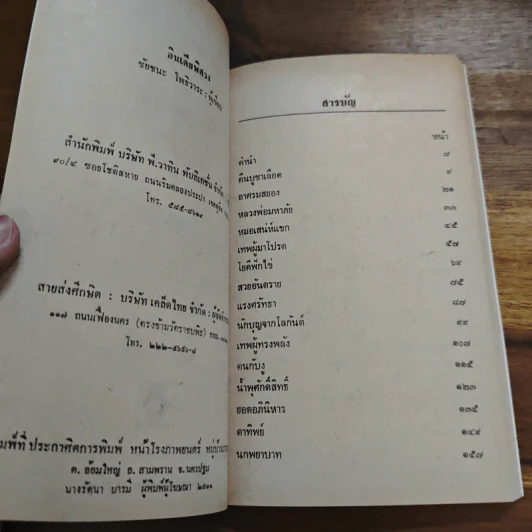 อินเดียพิศวง
ชัยชนะ โพธิวาระ : ผู้เขียน
สำนักพิมพ์ บริษัท พี.วาทิน พับลิเคชั่น จำกัด
๙๐/๔ ซอยโชติสหาย ถนนริมคลองประปา
โทร. ๕๘๕-๔๑๑๙
สายส่งศึกษิต : บริษัท เคล็ดไทย จำกัด :
๑๑๗ ถนนเฟื่องนคร (ตรงข้ามวัดราชบพิธ)
โทร. ๒๒๒-๕๖๙๖-๘
พิมพ์ที่ ประกาศิตการพิมพ์ หน้าโรงภาพยนตร์
ต. อ้อมใหญ่ อ. สามพราน จ. นครปฐม
นางรัตนา บารมี ผู้พิมพ์ผู้โฆษณา
สารบัญ
หน้า
คำนำ ๗
คืนบูชาเลือด ๙
อาศรมสยอง ๒๑
หลวงพ่อมหาภัย ๓๓
หมอเสน่ห์แขก ๔๕
เทพผู้มาโปรด ๕๗
โยคีฟักไข่ ๖๙
สวยอันตราย ๗๕
แรงศรัทธา ๘๗
นักบุญจากโลกันต์ ๙๙
เทพผู้ทรงพลัง ๑๐๗
คนกับงู ๑๑๕
น้ำพุศักดิ์สิทธิ์ ๑๒๓
ยอดอภินิหาร ๑๓๕
ตาทิพย์ ๑๔๙
นกพยาบาท ๑๕๗